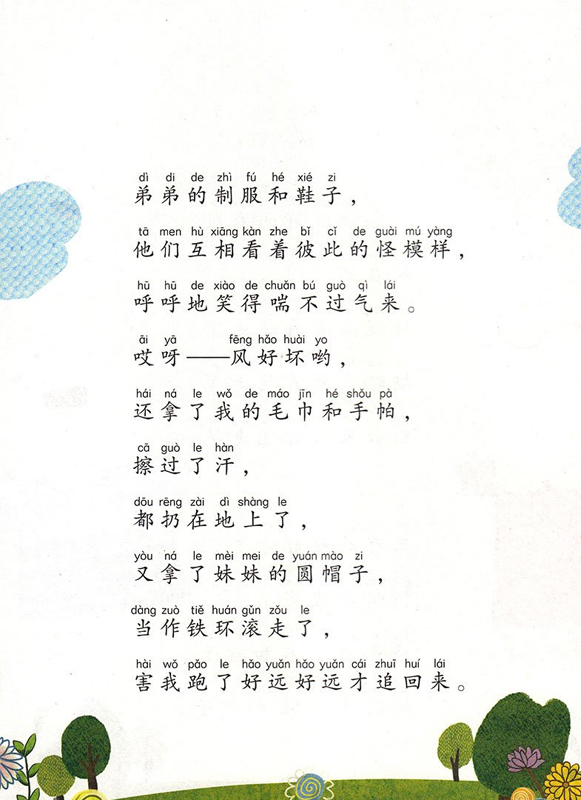 dì di de zhì fú hé xié zi
弟弟的制服和鞋子，
tā men hù xiāng kàn zhe bǐ cǐ de guài mú yàng
他们互相看着彼此的怪模样，
hū hū de xiào de chuǎn bú guò qì lái
呼呼地笑得喘不过气来。
āi yā fēng hǎo huài yo
哎呀——风好坏哟，
hái ná le wǒ de máo jīn hé shǒu pà
还拿了我的毛巾和手帕，
cā guò le hàn
擦过了汗，
dōu rēng zài dì shàng le
都扔在地上了，
yòu ná le mèi mei de yuán mào zi
又拿了妹妹的圆帽子，
dàng zuò tiě huán gǔn zǒu le
当作铁环滚走了，
hài wǒ pǎo le hǎo yuǎn hǎo yuǎn cái zhuī huí lái
害我跑了好远好远才追回来。